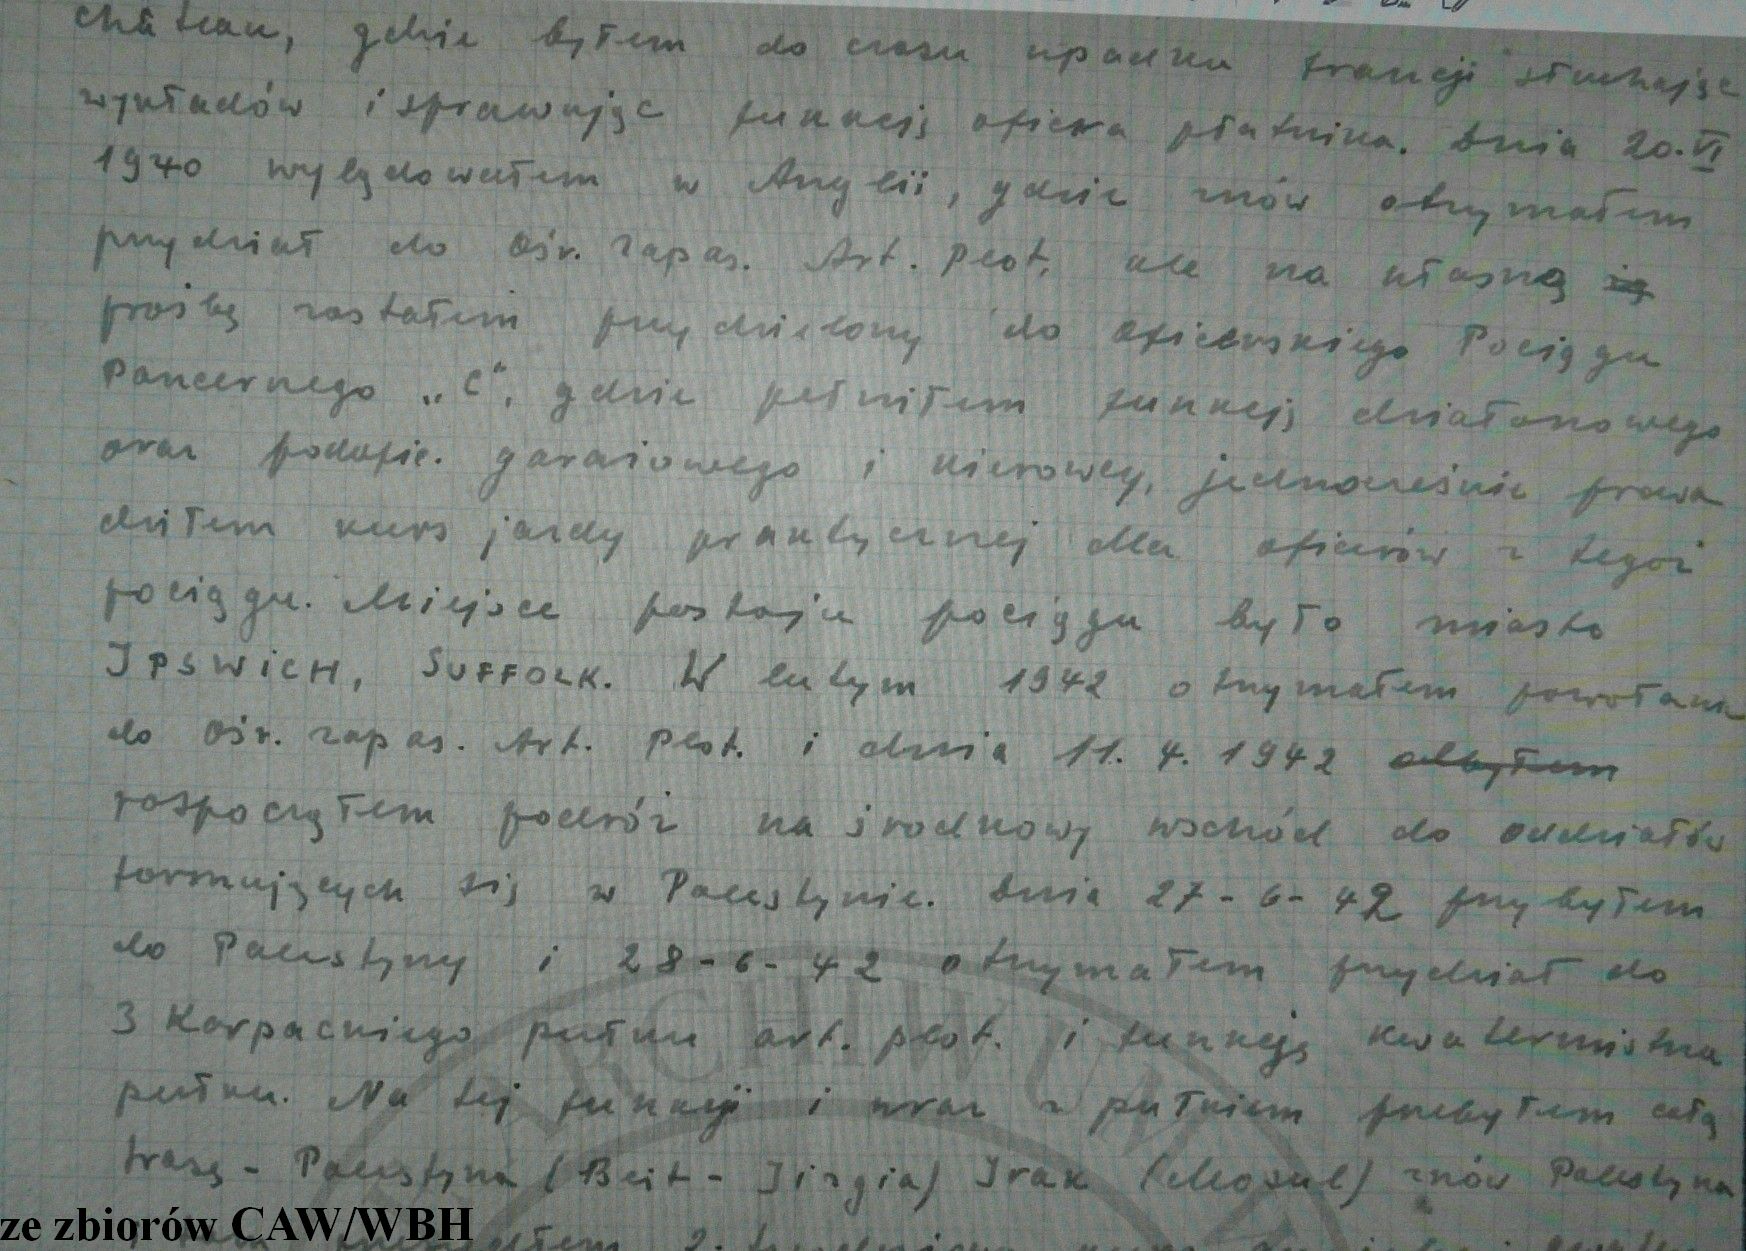 château, gdzie byłem do czasu upadku Francji słuchając
wykładów i sprawując funkcję oficera płatnika. Dnia 20.VI
1940 wylądowałem w Anglii, gdzie znów otrzymałem
przydział do Ośr. Zapas. Art. Plot. ale na własną
prośbę zostałem przydzielony do Oficerskiego Pociągu
Pancernego „C", gdzie pełniłem funkcję działonowego
oraz podofic. garażowego i kierowcy, jednocześnie prowa
dziłem kurs jazdy praktycznej dla oficerów z tegoż
pociągu. Miejsce postoju pociągu było miasto
IPSWICH, SUFFOLK. W lutym 1942 otrzymałem powołanie
do Ośr. Zapas. Art. Plot. i dnia 11. 4. 1942 odbyłem
rozpocząłem podróż na środkowy wschód do oddziałów
formujących się w Palestynie. Dnia 27-6-42 przybyłem
do Palestyny i 28-6-42 otrzymałem przydział do
3 Karpackiego pułku art. plot. i funkcję kwatermistrza
pułku. Na tej funkcji i wraz z pułkiem przebyłem całą
trasę - Palestyna (Beit-Jirgia) Irak (Mosul) znów Palestyna
ARCHIWUM
ze zbiorów CAW/WBH